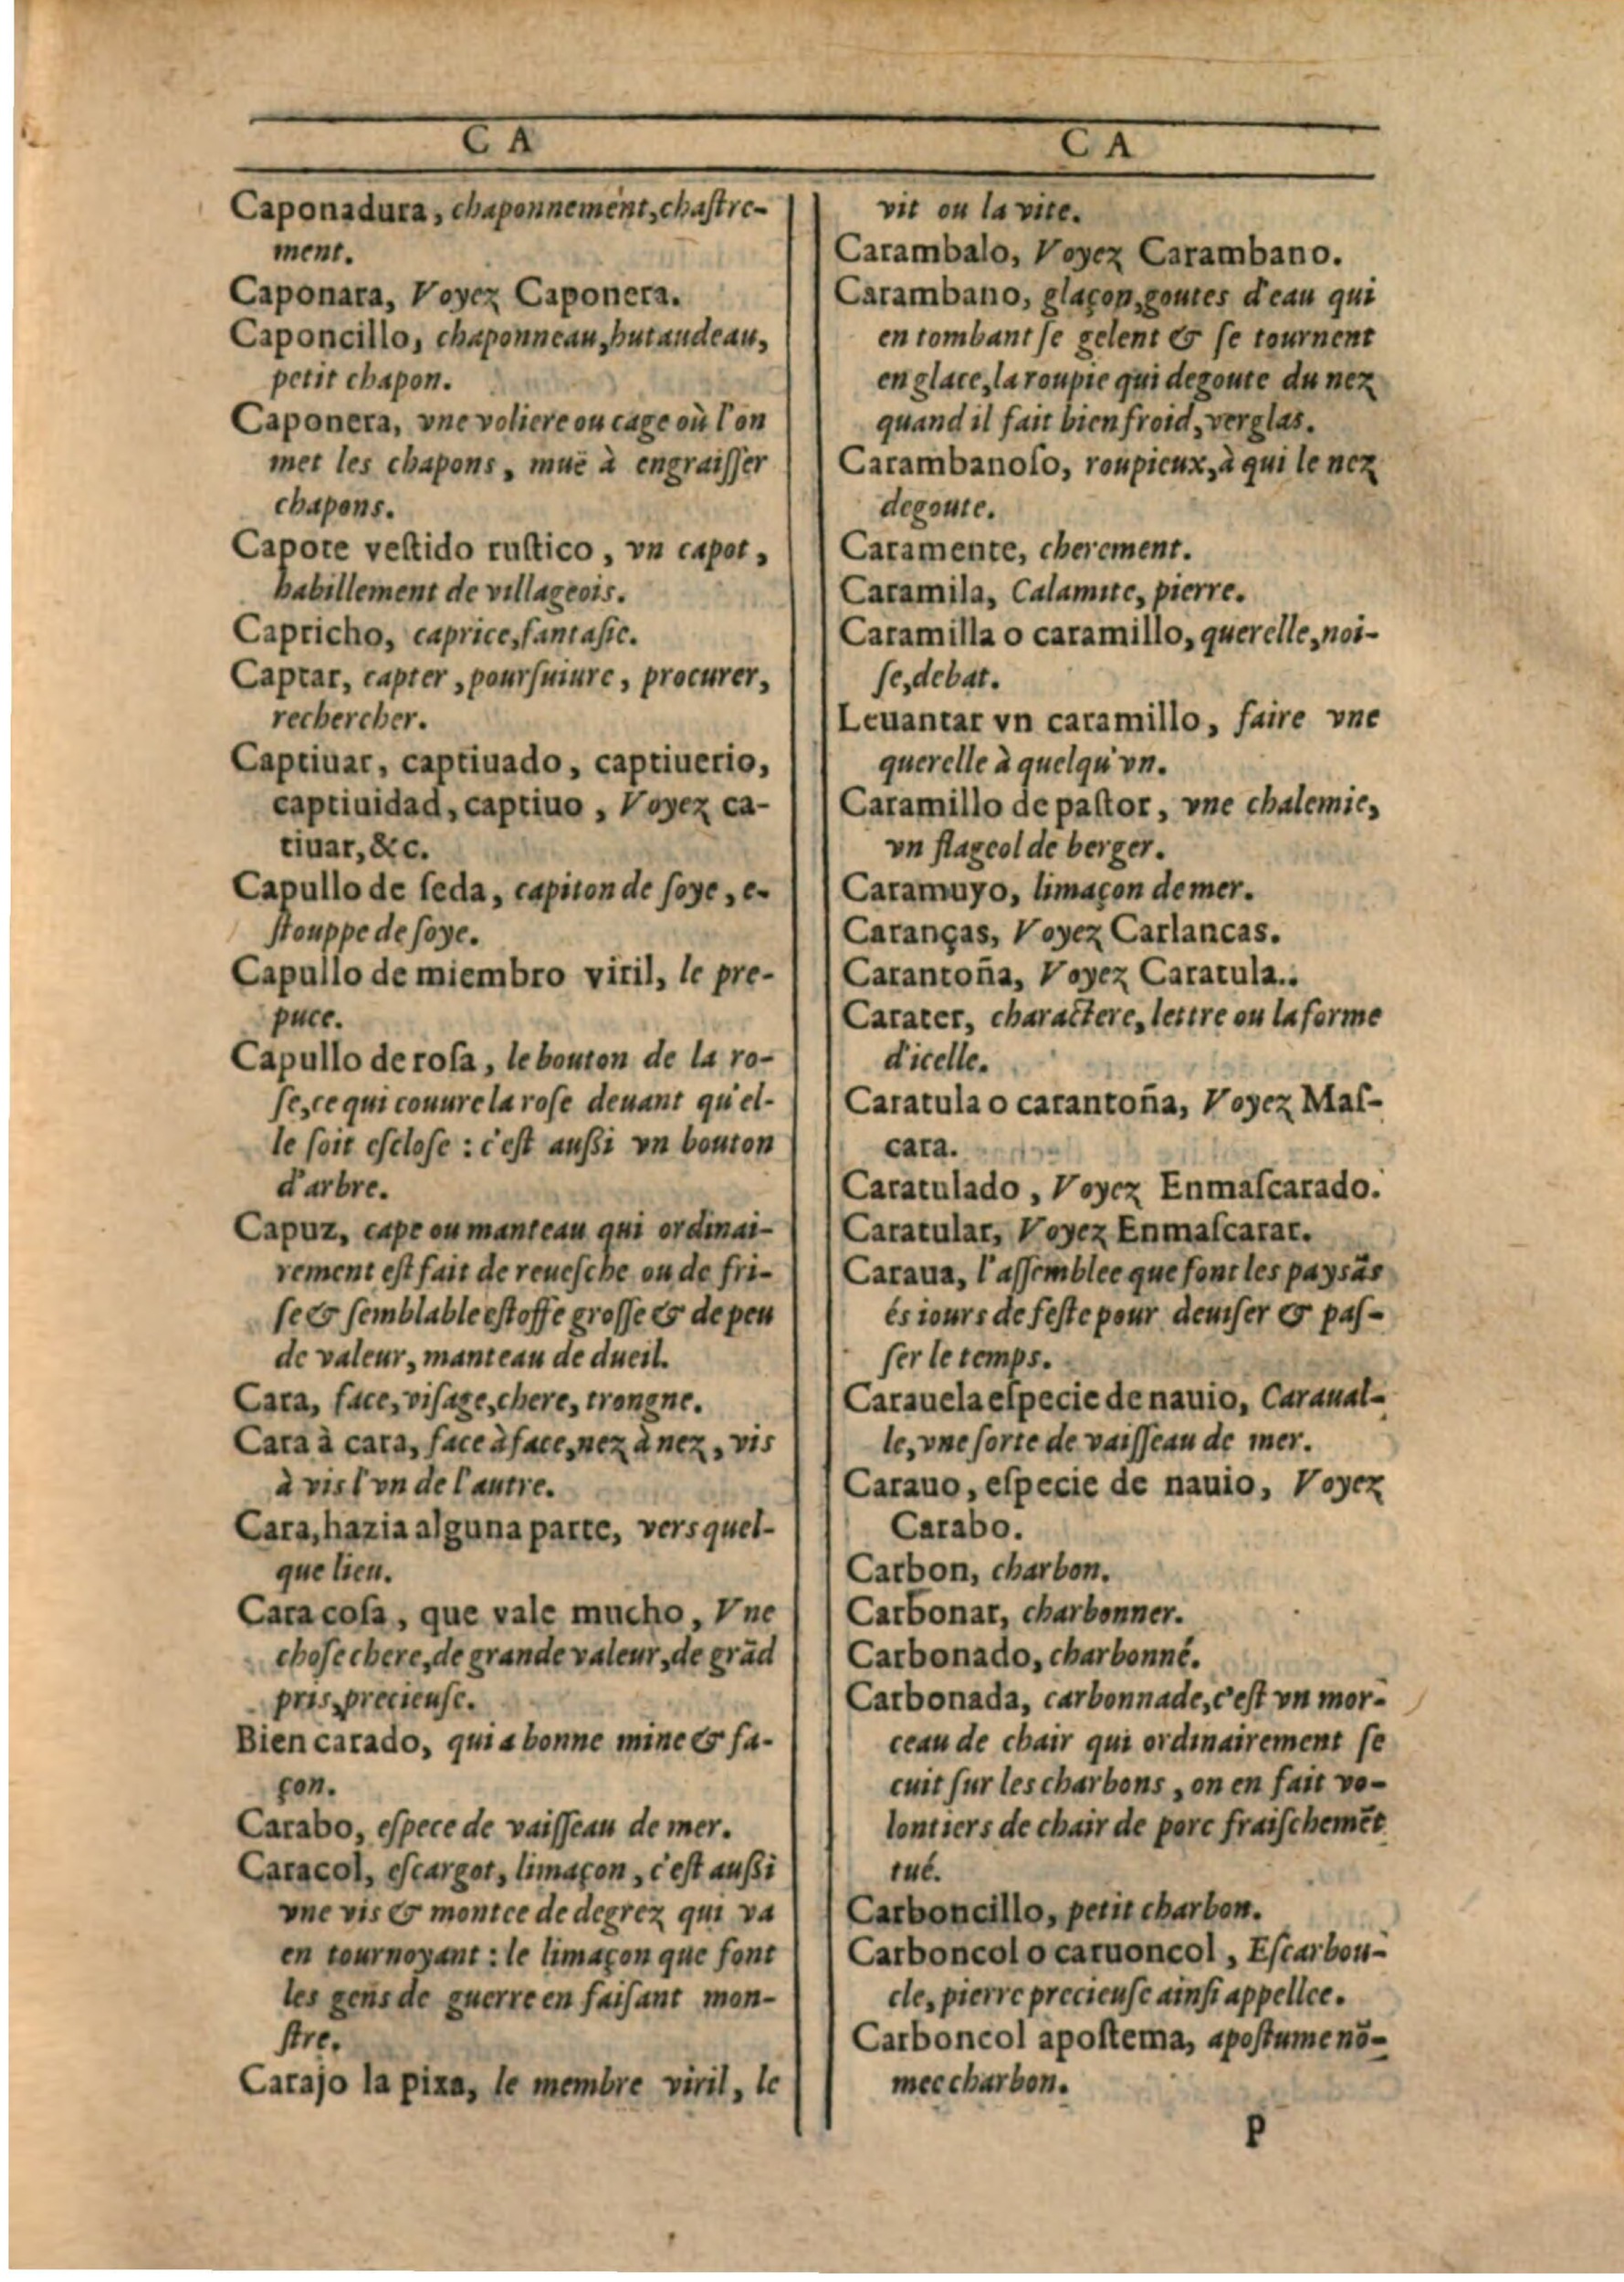 C A
Caponadura, chaponnement, chaſtre-
ment.
Caponara, Voyez Caponera.
Caponcillo, chaponneau, hutaudeau,
petit chapon.
Caponera, vne voliere ou cage où l'on
met les chapons, muë à engraiſſer
chapons.
Capote veſtido ruſtico, vn capot,
habillement de villageois.
Capricho, caprice, fantaſie.
Captar, capter, pourſuiure, procurer,
rechercher.
Captiuar, captiuado, captiuerio,
captiuidad, captiuo, Voyez ca-
tiuar, &c.
Capullo de ſeda, capiton de ſoye, e-
ſtouppe de ſoye.
Capullo de miembro viril, le pre-
puce.
Capullo de roſa, le bouton de la ro-
ſe, ce qui couure la roſe deuant qu'el-
le ſoit eſcloſe : c'eſt auſſi vn bouton
d'arbre.
Capuz, cape ou manteau qui ordinai-
rement eſt fait de reueſche ou de fri-
ſe & ſemblable eſtoffe groſſe & de peu
de valeur, manteau de dueil.
Cara, face, viſage, chere, trongne.
Cara à cara, face à face, nez à nez, vis
à vis l'vn de l'autre.
Cara, hazia alguna parte, vers quel-
que lieu.
Cara coſa, que vale mucho, Vne
choſe chere, de grande valeur, de grãd
pris, precieuſe.
Bien carado, qui a bonne mine & fa-
çon.
Carabo, eſpece de vaiſſeau de mer.
Caracol, eſcargot, limaçon, c'eſt auſſi
vne vis & montee de degrez qui va
en tournoyant : le limaçon que font
les gens de guerre en faiſant mon-
ſtre.
Carajo la pixa, le membre viril, le
C A
vit ou la vite.
Carambalo, Voyez Carambano.
Carambano, glaçon, goutes d'eau qui
en tombant ſe gelent & ſe tournent
en glace, la roupie qui degoute du nez
quand il fait bien froid, verglas.
Carambanoſo, roupieux, à qui le nez
degoute.
Caramente, cherement.
Caramila, Calamite, pierre.
Caramilla o caramillo, querelle, noi-
ſe, debat.
Leuantar vn caramillo, faire vne
querelle à quelqu'vn.
Caramillo de paſtor, vne chalemie,
vn flageol de berger.
Caramuyo, limaçon de mer.
Caranças, Voyez Carlancas.
Carantoña, Voyez Caratula..
Carater, charactere, lettre ou la forme
d'icelle.
Caratula o carantoña, Voyez Maſ-
cara.
Caratulado, Voyez Enmaſcarado.
Caratular, Voyez Enmaſcarar.
Caraua, l'aſſemblee que font les payſãs
és iours de feſte pour deuiſer & paſ-
ſer le temps.
Carauela eſpecie de nauio, Carauel-
le, vne ſorte de vaiſſeau de mer.
Carauo, eſpecie de nauio, Voyez
Carabo.
Carbon, charbon.
Carbonar, charbonner.
Carbonado, charbonné.
Carbonada, carbonnade, c'eſt vn mor-
ceau de chair qui ordinairement ſe
cuit ſur les charbons, on en fait vo-
lontiers de chair de porc fraiſchemẽt
tué.
Carboncillo, petit charbon.
Carboncol o caruoncol, Eſcarbou-
cle, pierre precieuſe ainſi appellee.
Carboncol apoſtema, apoſtume nõ-
mee charbon.
P